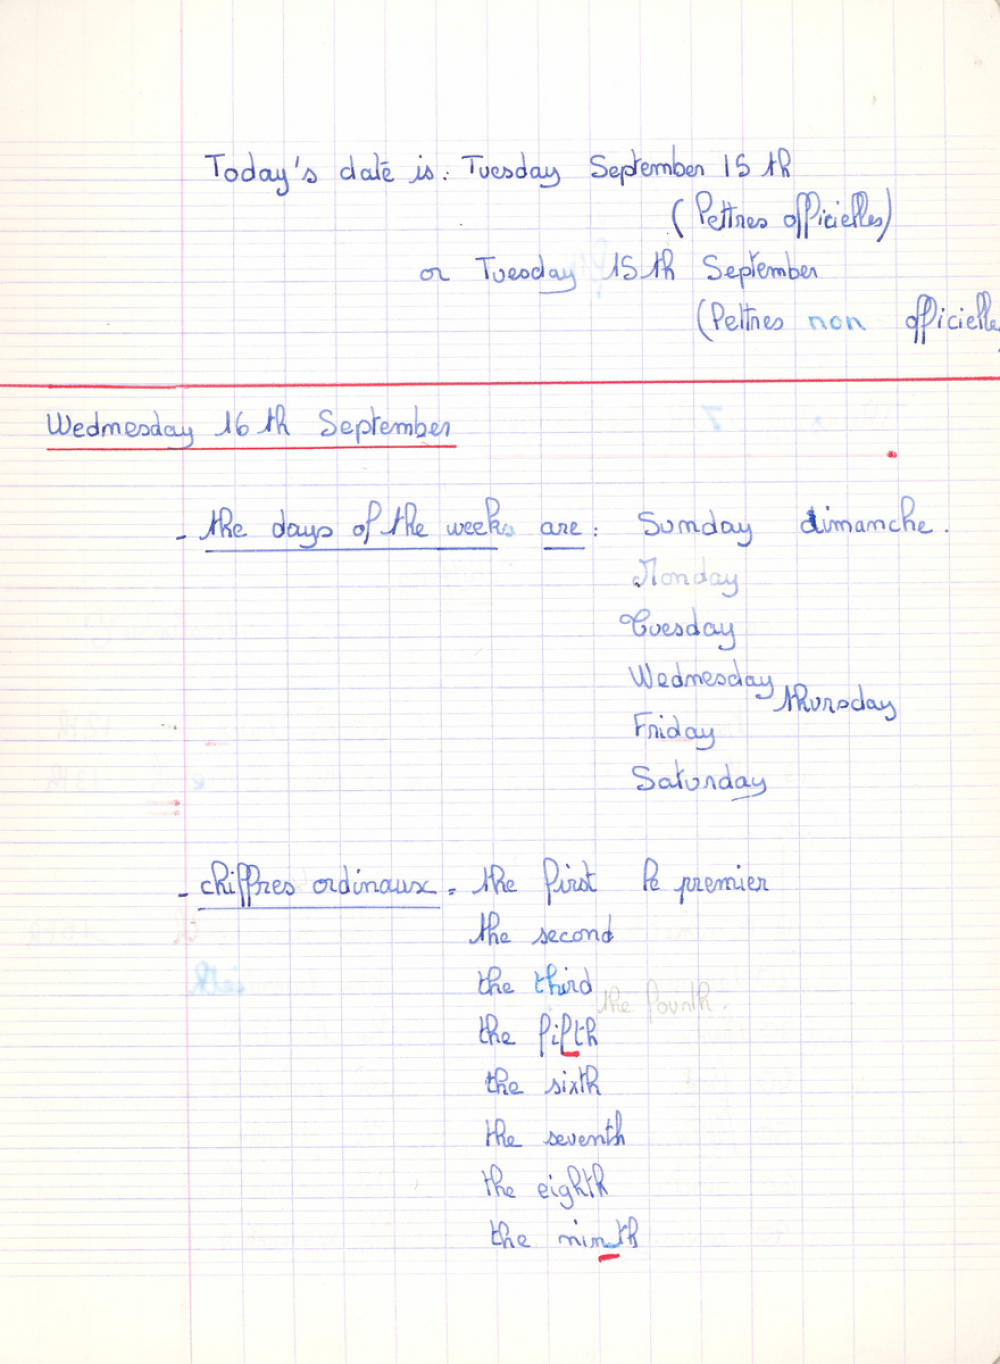 Today's date is: Tuesday September 15 th
(lettres officielles)
or Tuesday 15 th September
(lettres non officielles
Wednesday 16 th September
- the days of the weeks are : Sunday dimanche.
Monday
Tuesday
Wednesday
thursday
Friday
Saturday
- chiffres ordinaux = the first le premier
the second
the third
the fourth.
the fifth
the sixth
the seventh
the eighth
the ninth